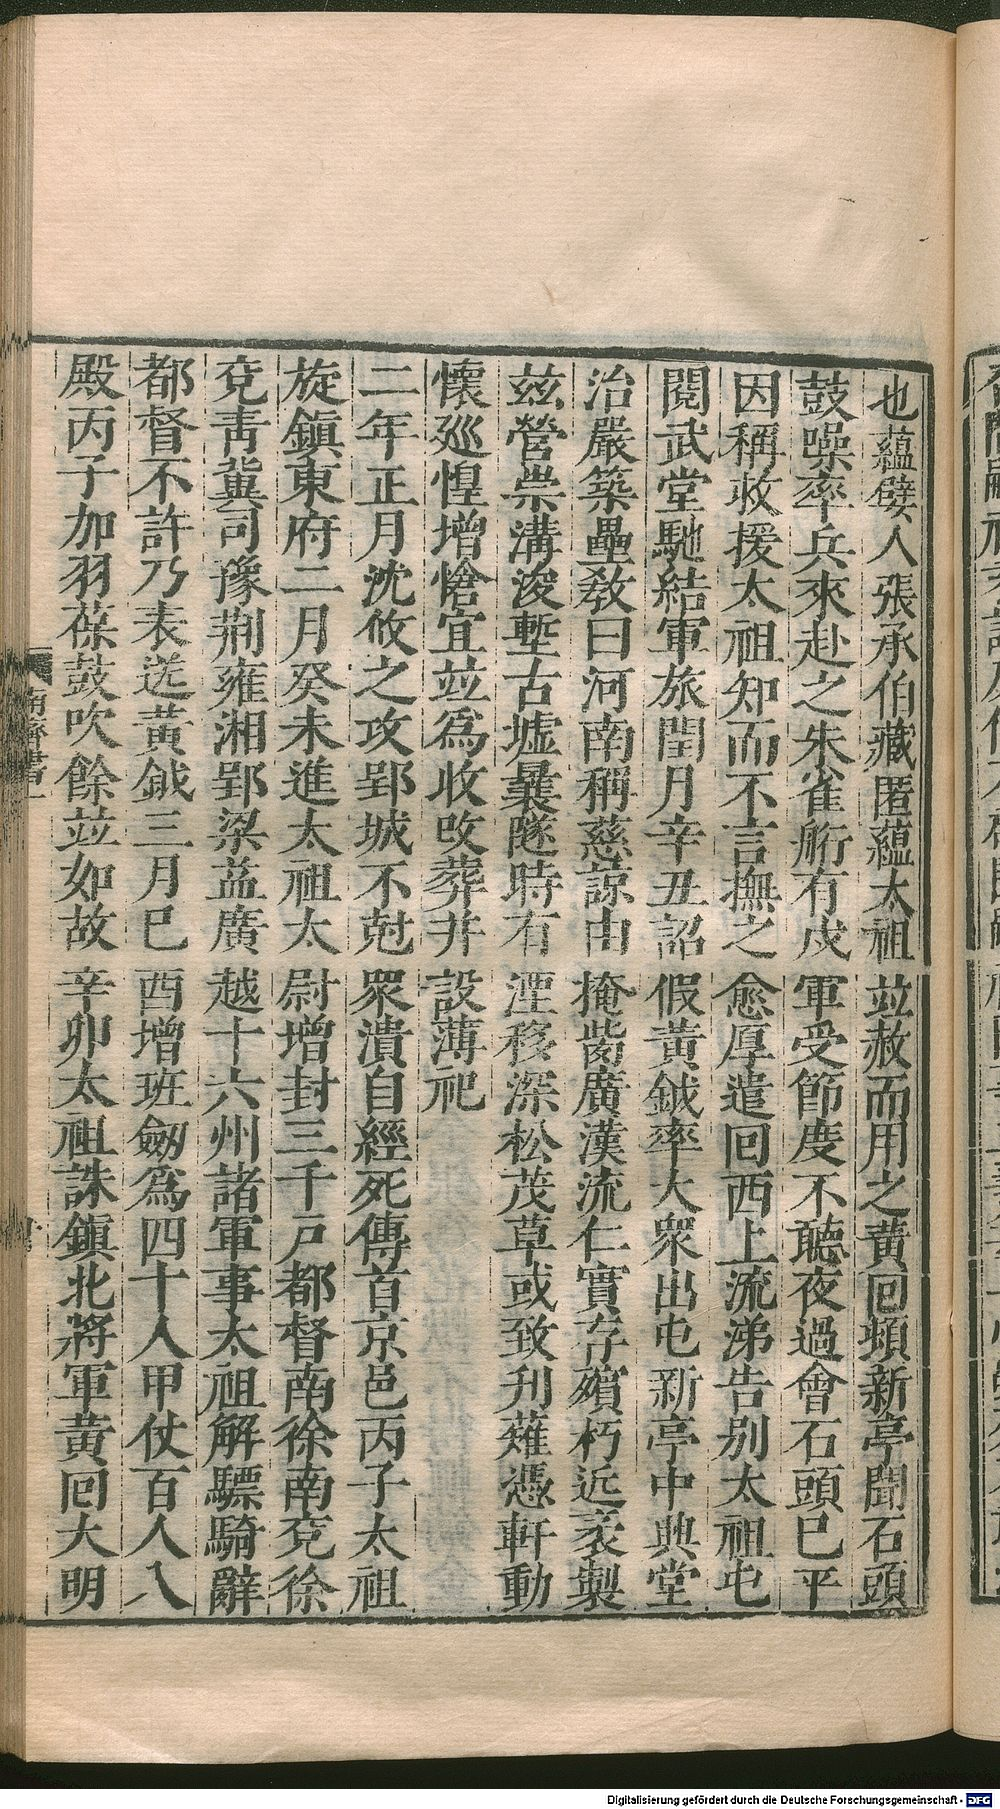 也蘊嬖人張承伯藏匿蘊太祖並赦而用之黃回頓新亭聞石頭
鼓噪率兵來赴之朱雀㭁有戍軍受節度不聽夜過會石頭巳平
因稱救援太祖知而不言撫之愈厚遣回西上流涕告別太祖屯
閱武堂馳結軍旅閏月辛丑詔假黃鉞率大衆出屯新亭中興堂
治嚴築壘敎曰河南稱慈諒由掩胔廣漢流仁實存殯朽近袤製
茲營崇溝浚塹古墟曩隧時有湮移深松茂草或致刋薙憑軒動
懷廵惶增愴宜竝爲收改葬并設薄祀
二年正月沈攸之攻郢城不尅衆潰自經死傳首京邑丙子太祖
旋鎭東府二月癸未進太祖太尉增封三千戸都督南徐南兗徐
兗靑冀司豫荆雍湘郢梁益廣越十六州諸軍事太祖解驃騎辭
都督不許乃表送黃鉞三月巳酉增班劒爲四十人甲仗百人入
殿丙子加羽葆鼓吹餘竝如故辛卯太祖誅鎭北將軍黃回大明
南齊書一
Digitalisierung gefördert durch die Deutsche Forschungsgemeinschaft - DFG